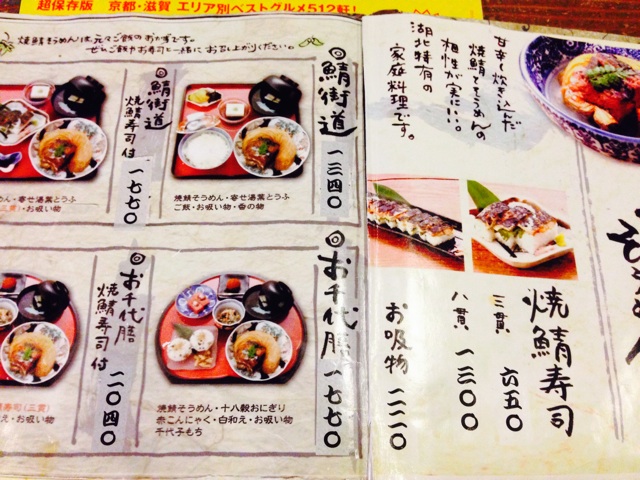 超保存版 京都・滋賀 エリア別ベストグルメ512軒!
焼鯖そうめんは元々ご飯のおかずです。
ぜひご飯やお寿司と一緒にお召し上がりください。
甘辛く炊き込んだ
焼鯖とそうめんの
相性が実にいい。
湖北特有の
家庭料理です。
鯖街道
一三四〇
焼鯖そうめん・寄せ湯葉とうふ
ご飯・お吸い物・香の物
鯖街道
焼鯖寿司付
一七七〇
めん・寄せ湯葉とうふ
三貫)・お吸い物
お千代膳
一七七〇
焼鯖そうめん・十八穀おにぎり
赤こんにゃく・白和え・お吸い物
千代子もち
お千代膳
焼鯖寿司付
二〇四〇
寿司(三貫)
え・お吸い物
焼鯖寿司
三貫 六五〇
八貫 一三〇〇
お吸物 二二〇